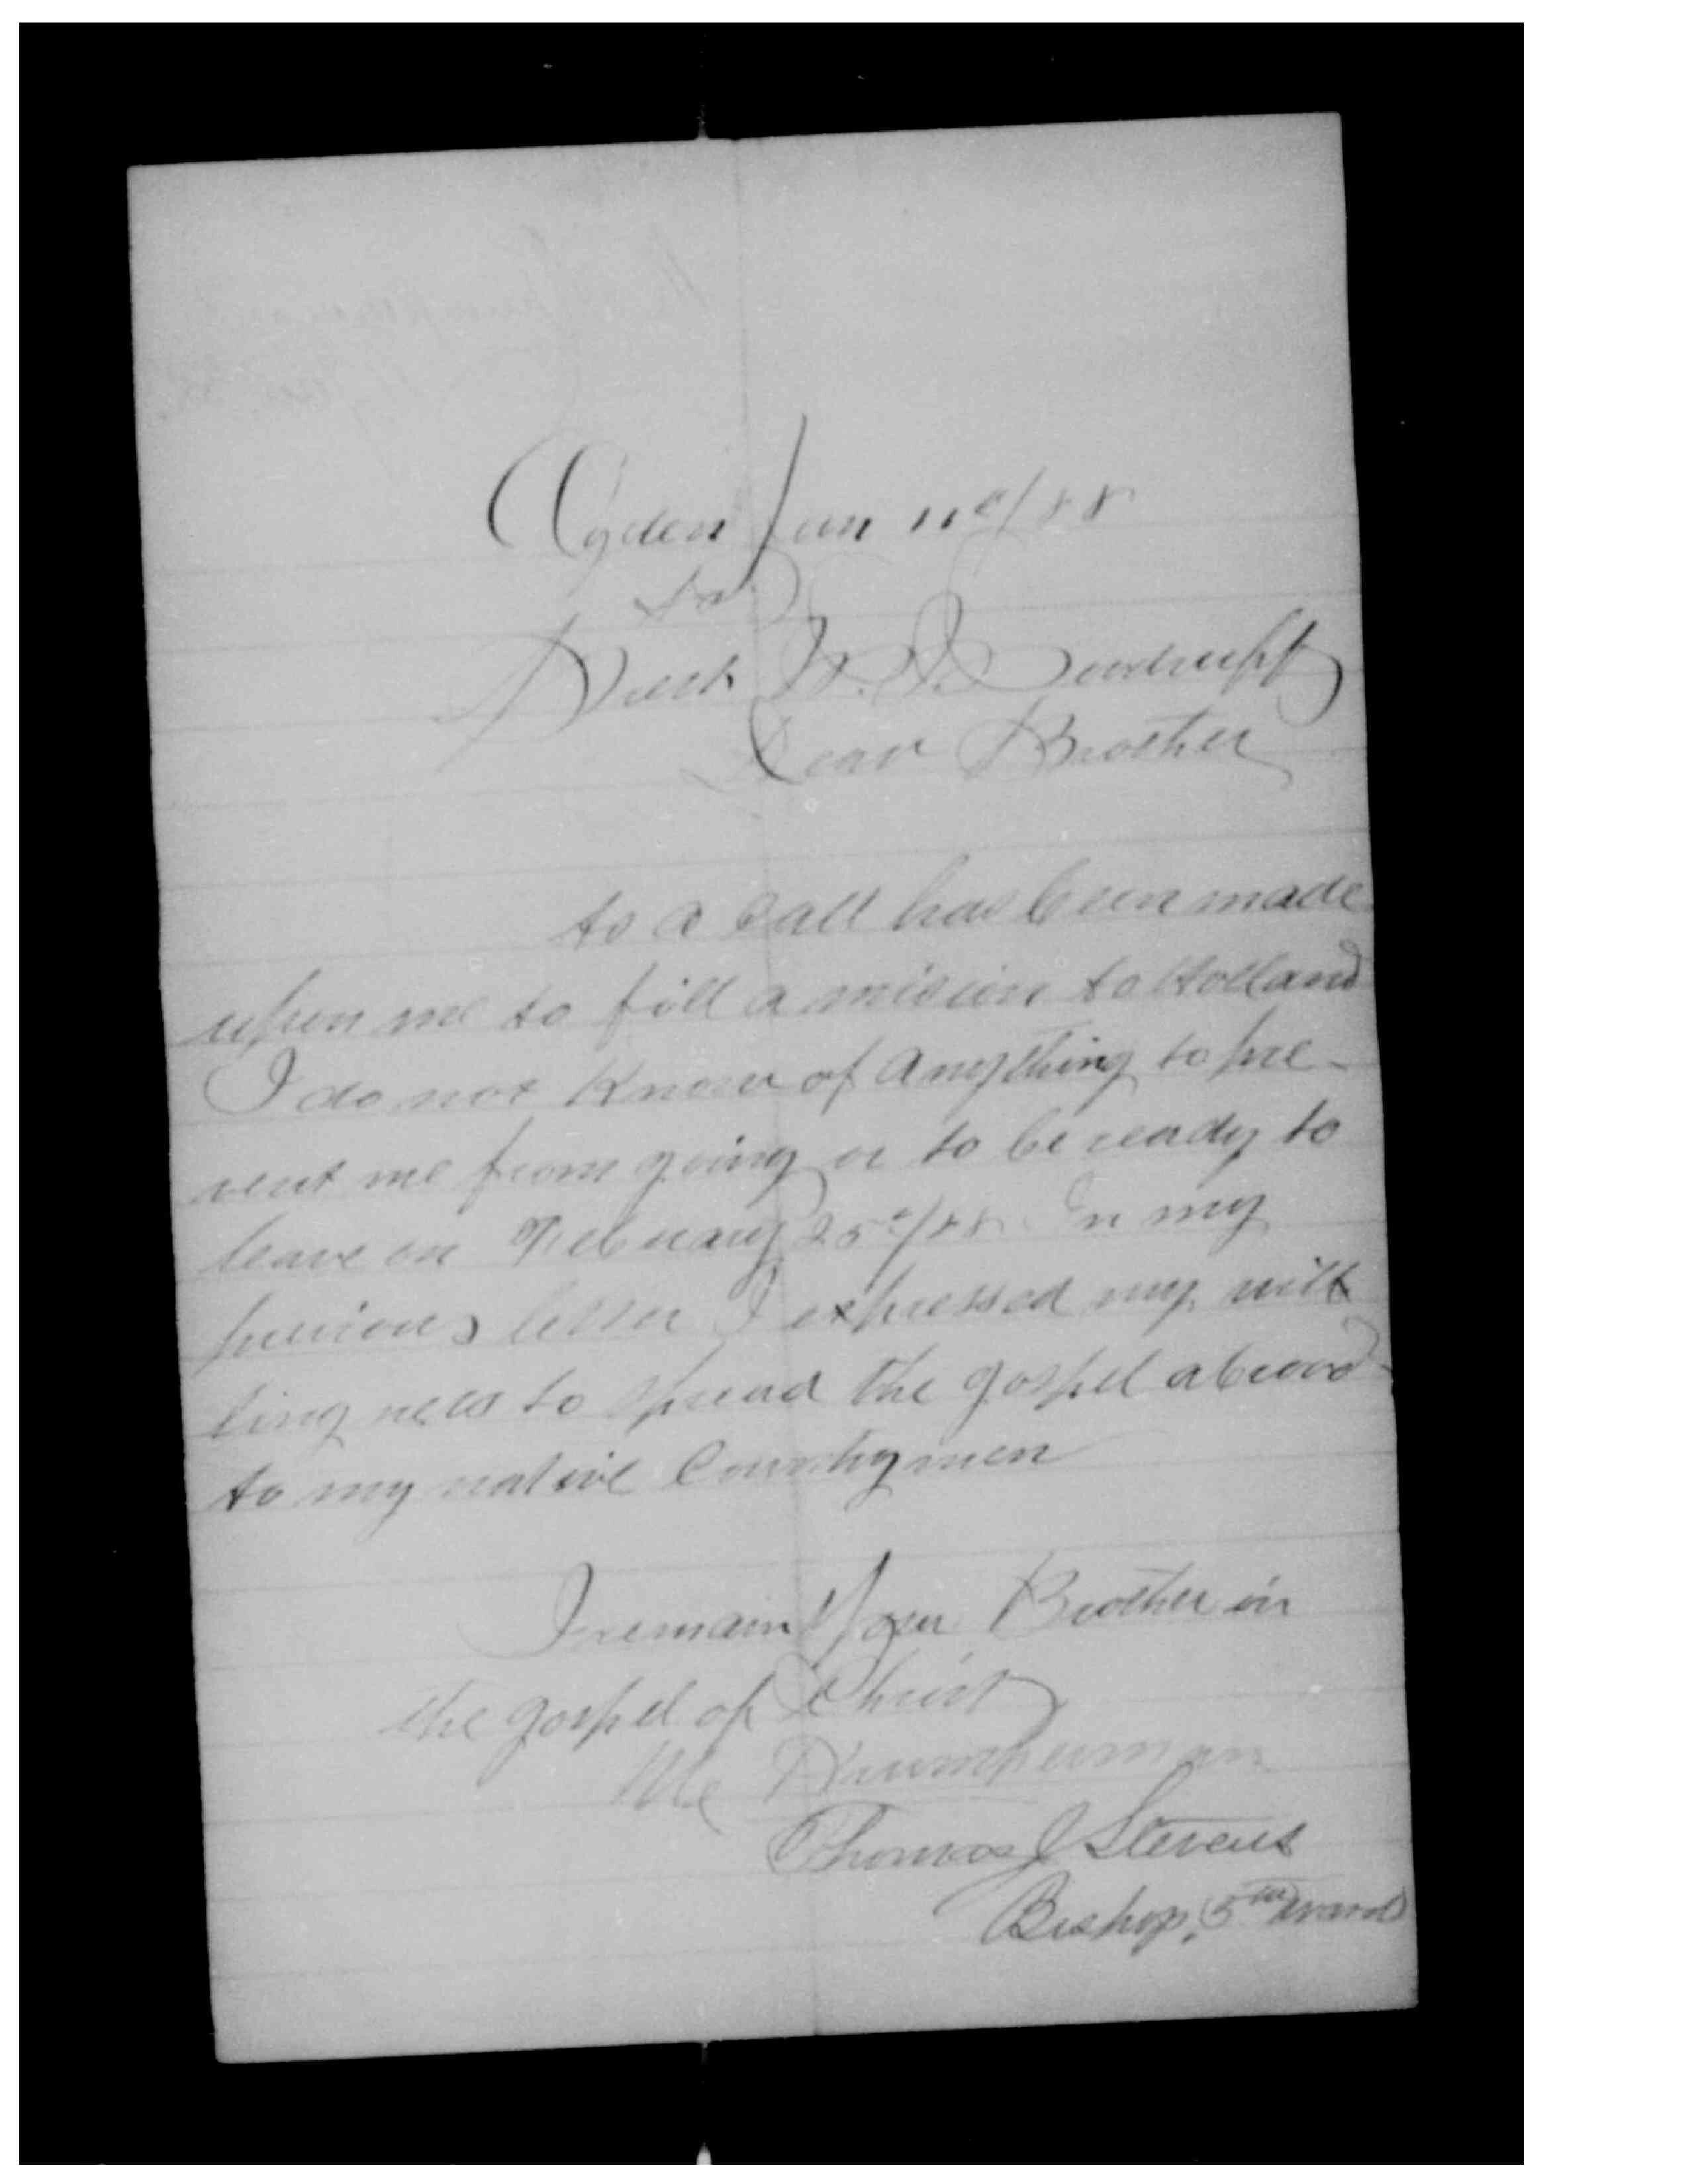 Ogden Jan 11th/88
to
Prest W. Woodruff
Dear Brother
to a call has been made
upon me to fill a mision to Holland
I do not know of anything to pre-
vent me from going or to be ready to
leave on February 25th/88 In my
previous letter I expressed my will
ling ness to spread the gospel abroad
to my native Countrymen
I remain Your Brother in
the gospel of Christ
Krumperman
Thomas J Stevens
Bishop, 5th ward